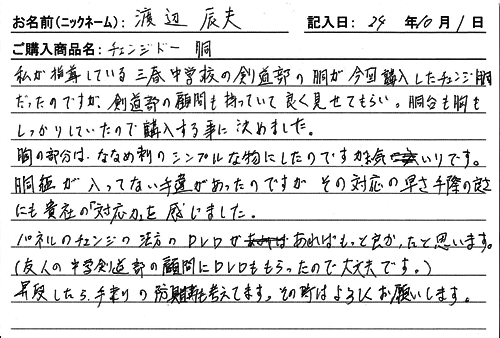 お名前(ニックネーム): 渡辺 辰夫 記入日: 24 年10月1日
ご購入商品名: チェンジドー 胴
私が指導している三原中学校の剣道部の胴が今回購入したチェンジ胴
だったのですが、剣道部の顧問も持っていて良く見せてもらい。胴台も胸も
しっかりしていたので購入する事に決めました。
胸の部分は、ななめ刺のシンプルな物にしたのですがお気にいりです。
胴紐が入ってない手違があったのですが その対応の早さ手際の良さ
にも貴社の「対応力」を感じました。
パネルのチェンジの法方のDVDがあればもっと良かったと思います。
(友人の中学剣道部の顧問にDVDももらったので大丈夫です。)
昇段したら、手刺の防具も考えてます。その時はよろしくお願いします。